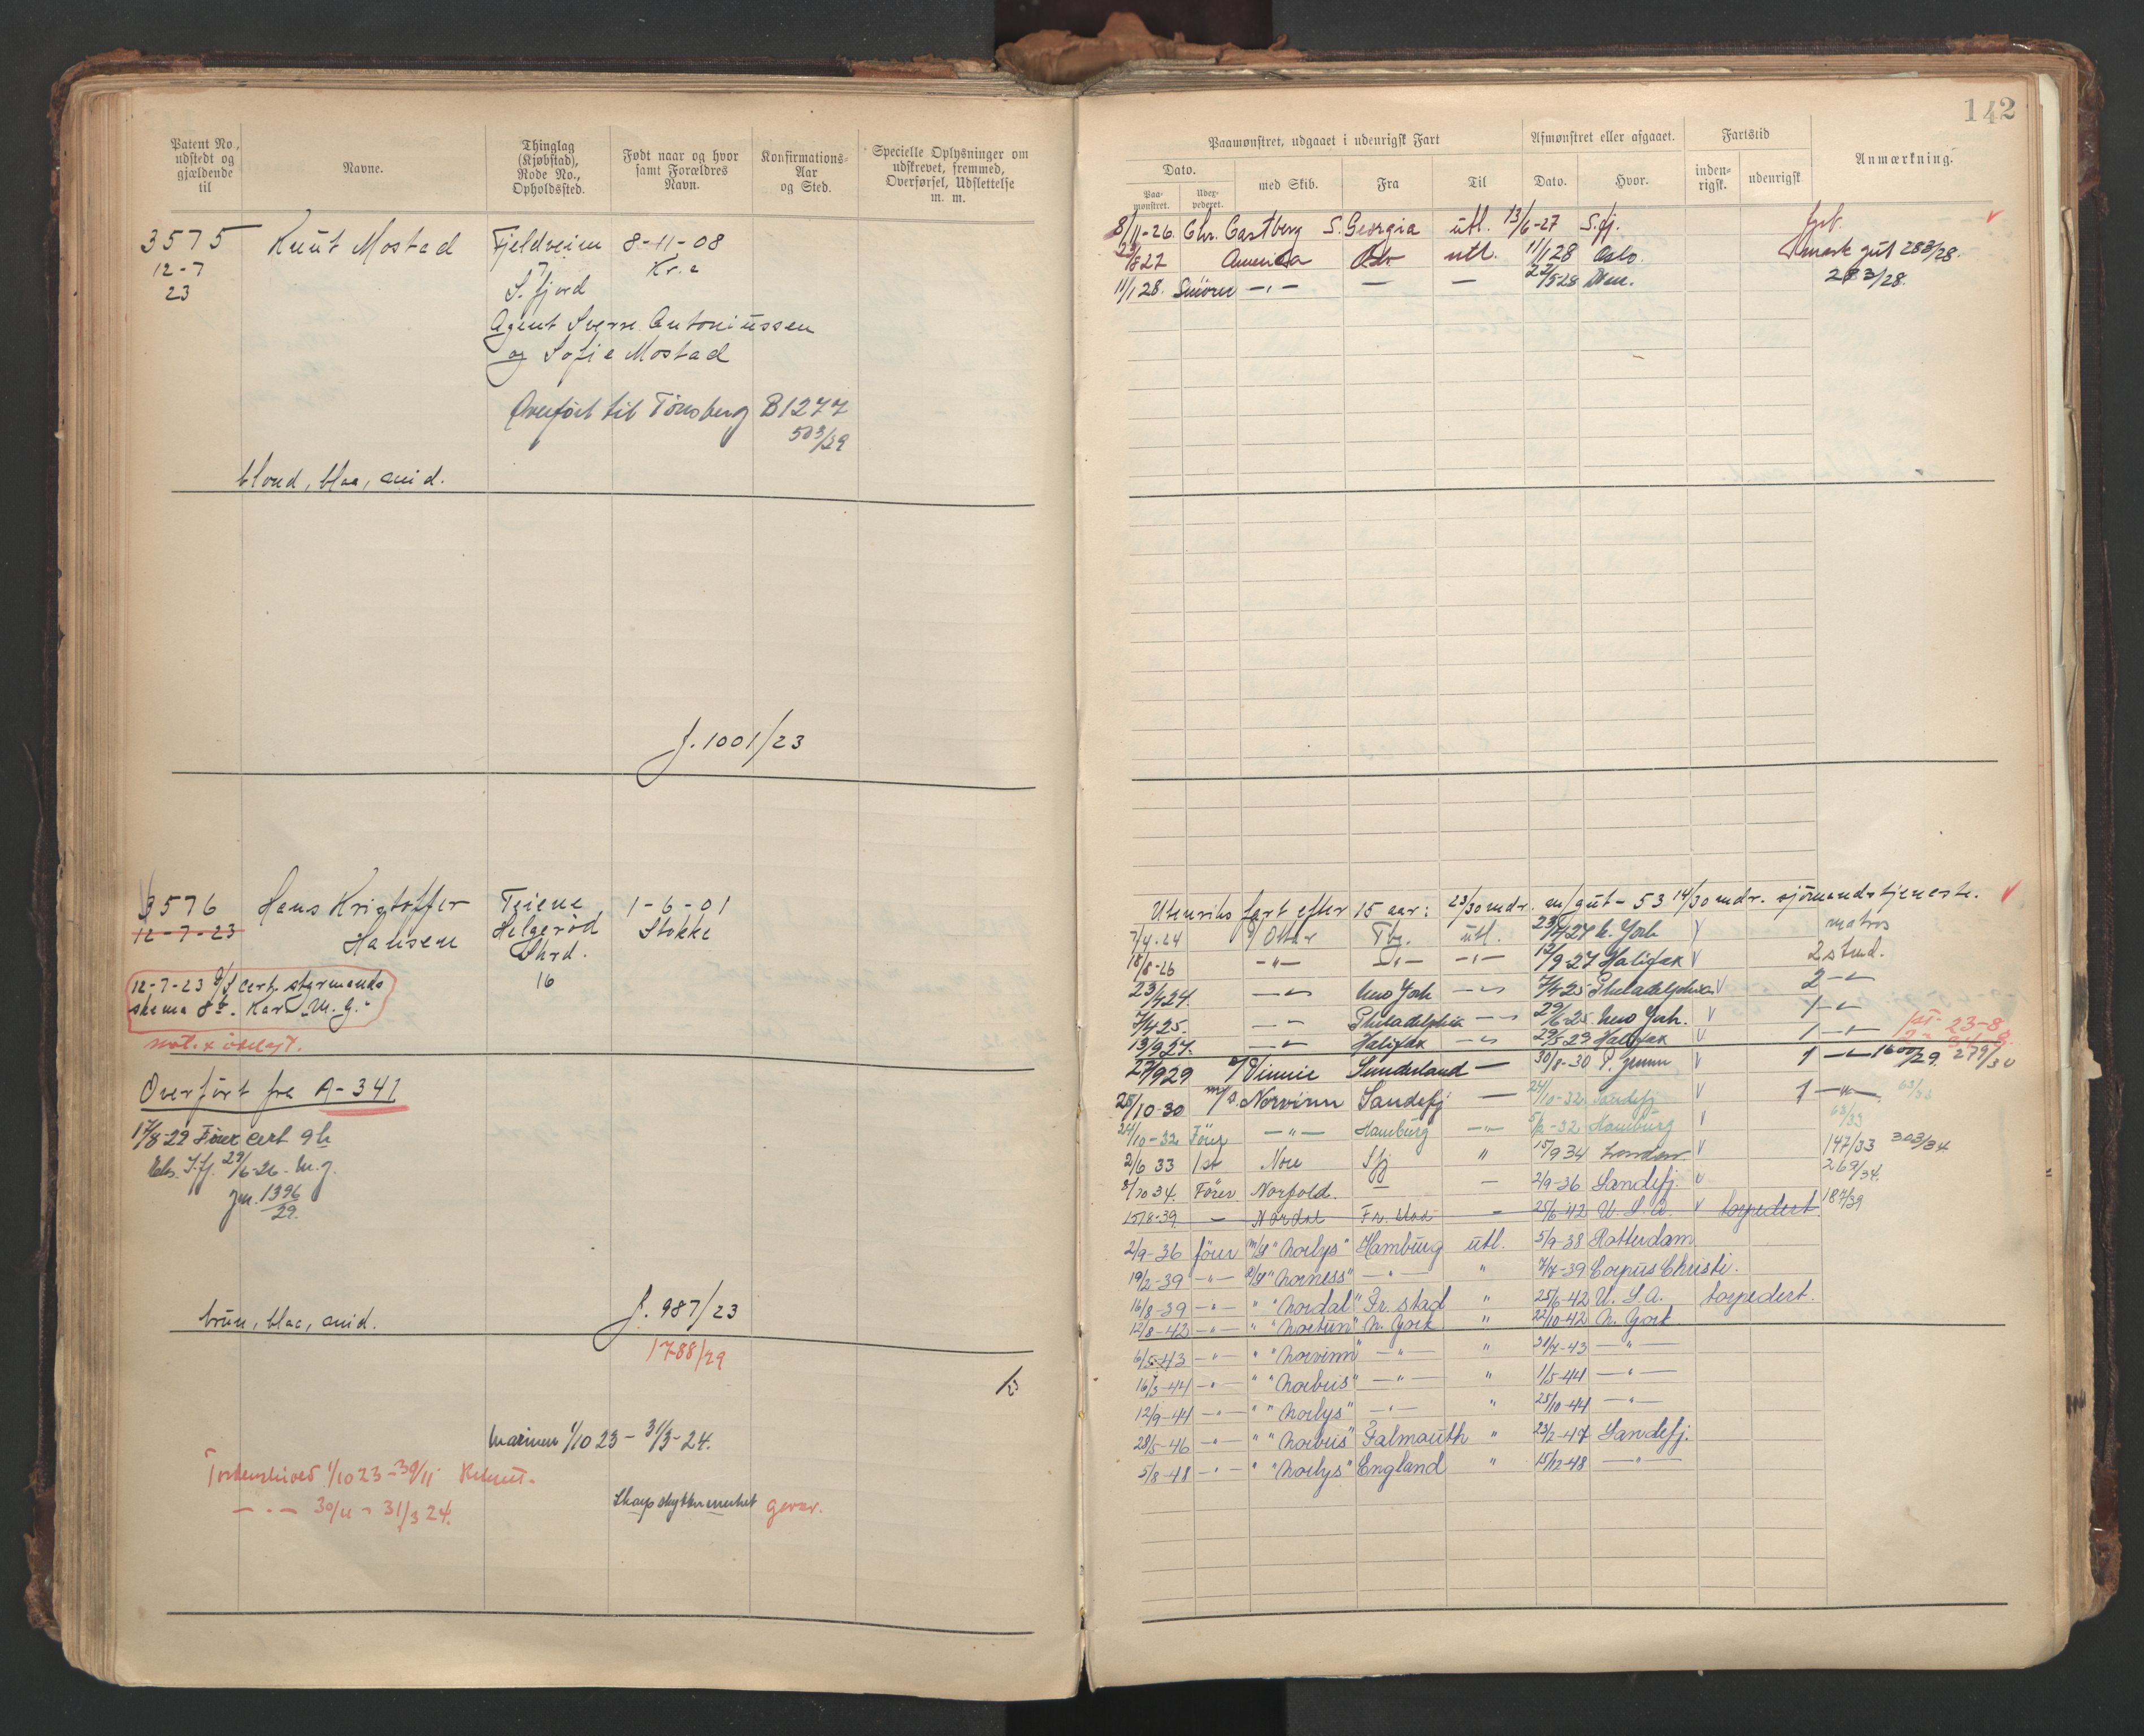 142
Patent No., udstedt og gjældende til
Navne.
Thinglag (Kjøbstad), Rode No., Opholdssted.
Født naar og hvor samt Forældres Navn.
Konfirmations-Aar og Sted.
Specielle Oplysninger om udskrevet, fremmed, Overførsel, Udslettelse m. m.
3575 Knut Mostad Fjeldheim 8-11-08
12-7 Kr.a
23 S. fjord
Agent Sverre Antoniussen
og Sofie Mostad
Overført til Tönsberg B1277
503/29
blond, blaa, mid.
J. 1001/23
3576 Hans Kristoffer Teiene 1-6-01
12-7-23 Hansen Helgerød Stokke
Skrd.
16
12-7-23 cert. styrmands
skema
Overfört fra A-341
17/8-29 Förer cert 9
29/6-26
1396/29
brun, blaa, mid.
J. 987/23
1788/29
Marinen 1/10 23 - 31/3-24.
Tordenskiold 1/10 23 - 30/11 Rekrut.
— " — 30/11 - 31/3 24.
Skarpskyttermerket gevær.
Paamønstret, udgaaet i udenrigsk Fart
Afmønstret eller afgaaet.
Fartstid
Anmærkning.
Dato.
Paa-mønstret.
Uder-pederet.
med Skib.
Fra
Til
Dato.
Hvor.
inden-rigsk.
udenrigsk
8/11-26. Chr. Castberg S. Georgia utl. 13/6-27 S.fj.
America Oslo utl. 11/1 28 Oslo. 283/28.
11/1 28. Smörer — " — — — 283/28.
Utenriks fart efter 15 aar: 23/30 mdr. m/gut - 53 14/30 mdr. sjömandstjeneste.
7/4-24 Otter Tbg. utl. N. York V matros
18/8-26 — " — — " — — " — 12/9-27 Halifax V 2 stmd.
23/4 24. — " — New York — " — 7/4 25 Philadelphia V 2 — " —
7/4 25. — " — Philadelphia — " — 29/6-25. New York. V 1 — " —
13/9 27. — " — Halifax — " — Halifax V 1 — " —
27/9 29 Vinnie Sunderland — 30/8-30 V 1 — " — 1600/29. 279/30
25/10-30 m/s. Norvinn Sandefj — 24/10-32 Sandefj V 1 — " — 63/33
24/10-32 Förer — " — Hamburg — " — Hamburg V 63/33
2/6 33 1st Nore Sfj " 15/9 34 London V 147/33 303/34
8/10 34. Förer Norfold. — — 2/9-36 Sandefj. V 269/34.
15/8-39. — Nordal Fr. stad — 25/6-42 U. S. A. V torpedert. 187/39
2/9-36 förer m/s "Norlys" Hamburg utl. 5/9-38 Rotterdam
19/2-39 — " — "Norness" — " — " 7/7-39 Corpus Christi.
16/8-39 — " — " "Nordal" Fr. stad " 25/6-42 U. S. A. torpedert.
12/8-42 — " — " "Nortun" N. York " 22/10-42 N. York
6/5-43 — " — " "Norvinn" — " — " — " —
16/3-44 — " — " "Norbris" — " — " 1/5-44 — " —
12/9-44 — " — " "Norlys" — " — " 25/10-44 — " —
28/5-46 — " — " "Norbris" Falmouth " 23/2-47 Sandefj.
5/8-48 — " — " "Norlys" England " 15/12-48 — " —